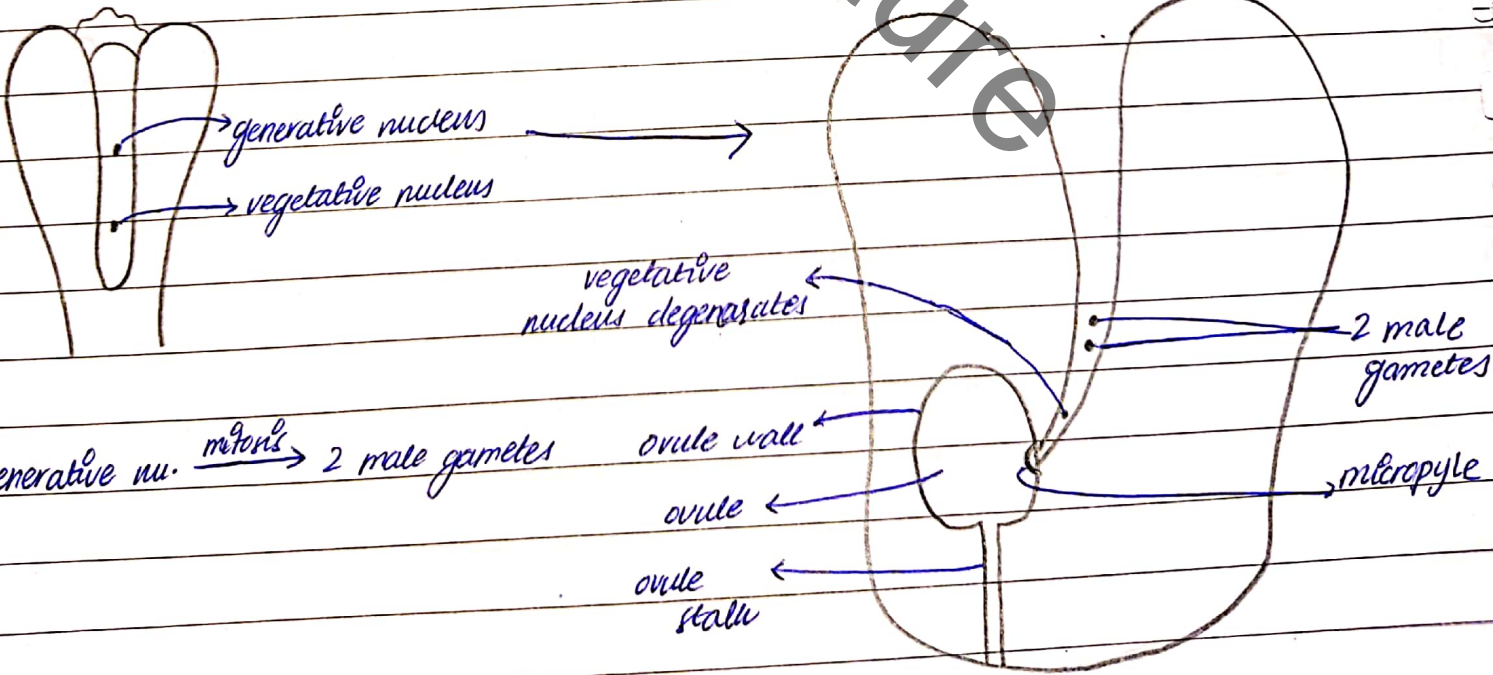 ure
generative nucleus
vegetative nucleus
vegetative
nucleus degenarates
2 male
gametes
enerative nu. mitosis 2 male gametes
ovule wall
ovule
micropyle
ovule
stalk